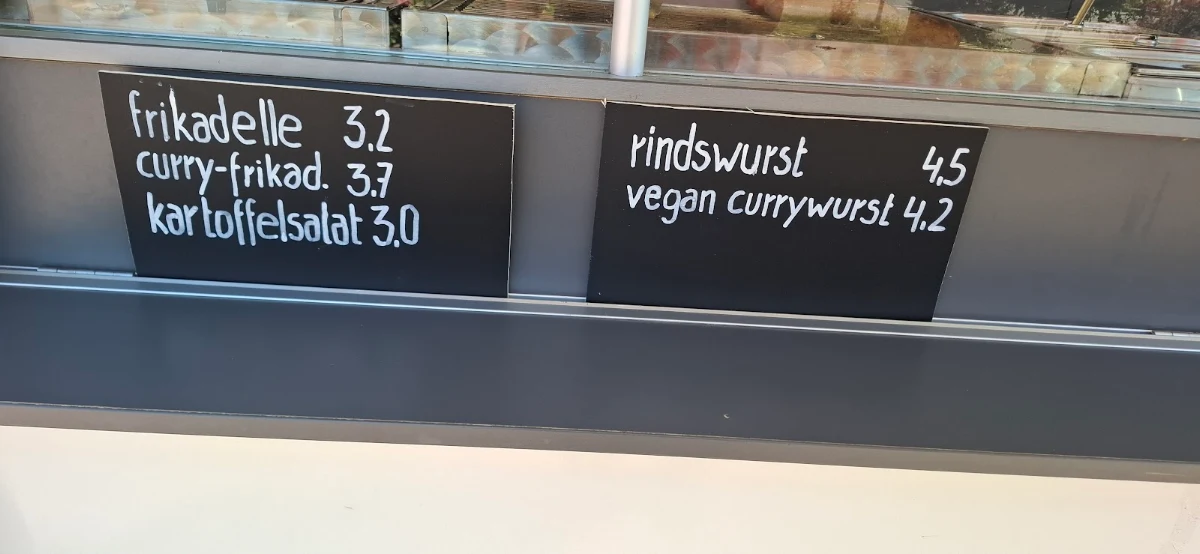 frikadelle 3.2
curry-frikad. 3.7
kartoffelsalat 3.0
rindswurst 4.5
vegan currywurst 4.2